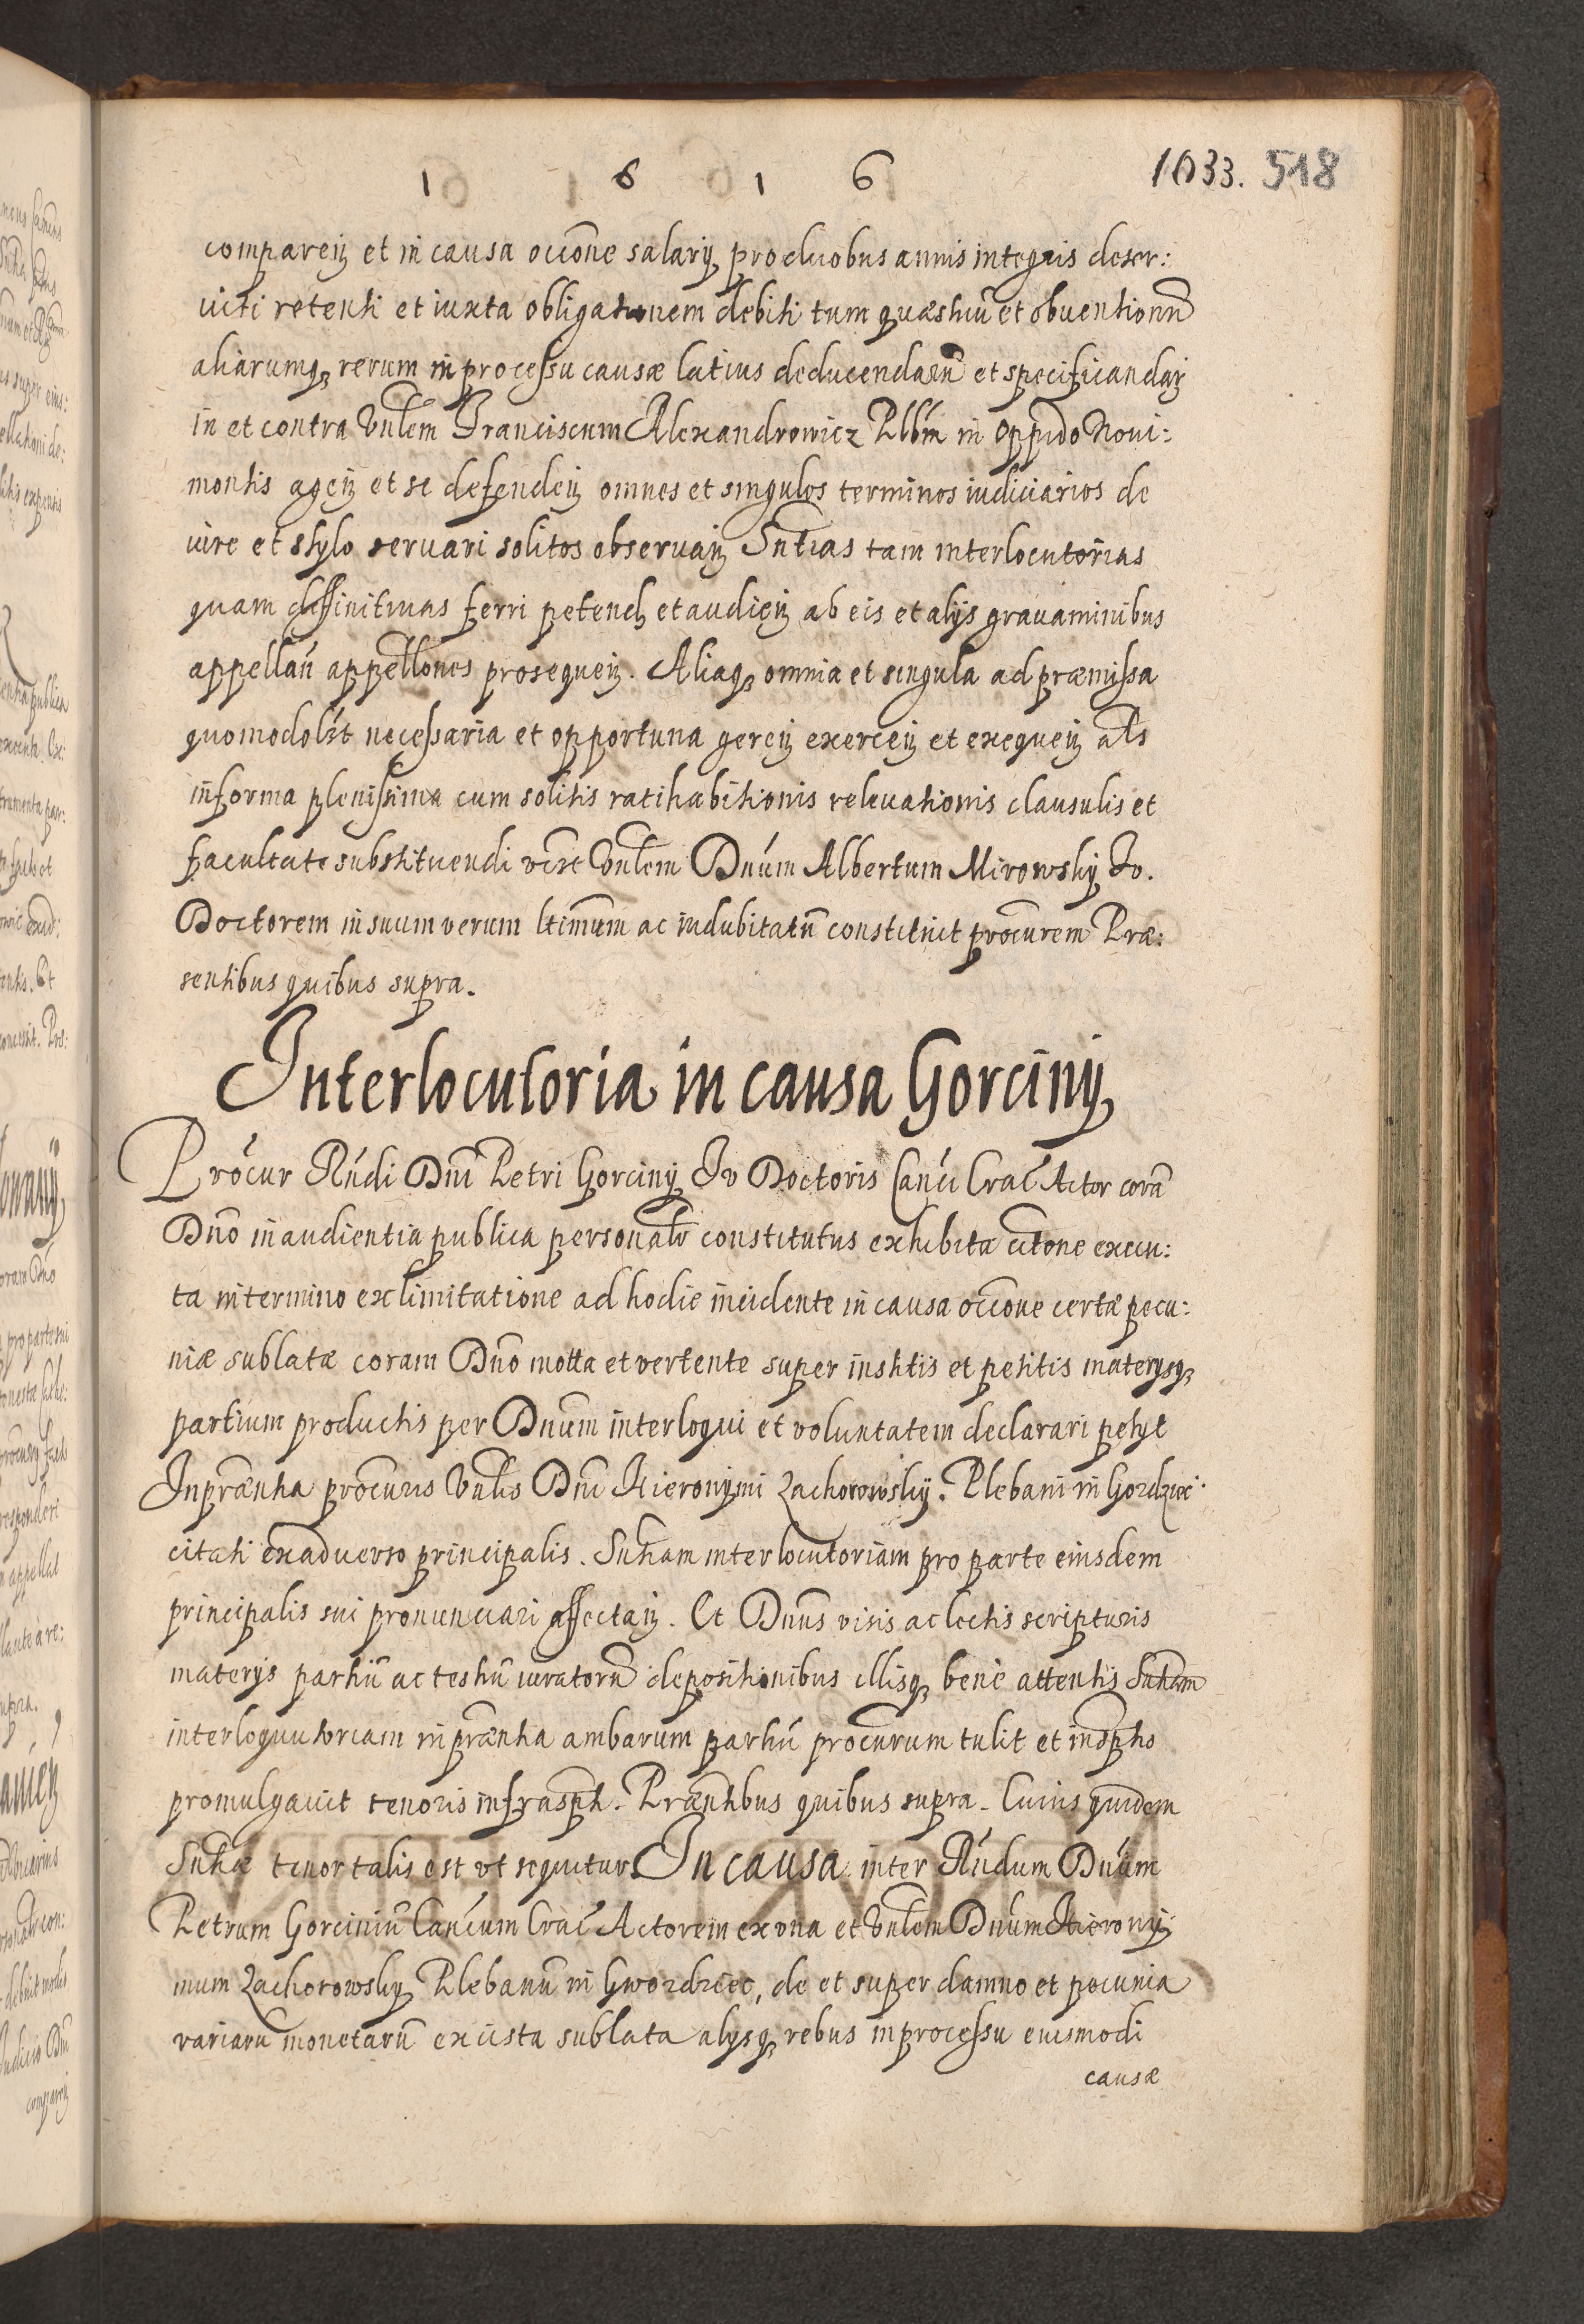 1 6 1 6 1033. 518
compareñ et in causa occōne salarij pro duobus annis integris deser:
viti retenti et iuxta obligationem debiti tum quæstiū et obuentionū
aliarumq, rerum in processu causæ latius deducendarū et specificandar
in et contra Vnlem Franciscum Alexandrowicz Plbm in oppido Noui:
montis agen et se defenden omnes et singulos terminos iudiciarios de
iure et stylo seruari solitos obseruan Sntias tam interlocutorias
quam diffinitiuas ferri petend et audien ab eis et alijs grauaminibus
appellan appellones prosequen. Aliaq, omnia et singula ad præmissa
quomodolt necessaria et opportuna geren exercen et exequen als
in forma plenissima cum solitis ratihabitionis releuationis clausulis et
facultate substituendi vice Vnlem Dnum Albertum Mirowsky Iv.
Doctorem in suum verum ltimum ac indubitatū constituit procurem Præ:
sentibus quibus supra.
Interlocutoria in causa Gorcinij
Procur Rndi Dni Petri Gorcinij Iv Doctoris Canci Crac Actor corā
Dno in audientia publica personalr constitutus exhibita citone execu:
ta in termino ex limitatione ad hodie incidente in causa occone certæ pecu:
niæ sublatæ coram Dno motta et vertente super institis et petitis materijsq,
partium productis per Dnum interloqui et voluntatem declarari petijt
In præntia procuris Vnlis Dni Hieronymi Zachorowsky. Plebani in Gordziec
citati ex aduerso principalis. Sntiam interlocutoriam pro parte eiusdem
principalis sui pronunciari affectan. Et Dnus visis ac lectis scripturis
materijs partiū ac testiū iuratorū depositionibus illisq, bene attentis Sntiam
interloquutoriam in præntia ambarum partiū procurum tulit et in scptis
promulgauit tenoris infrascpti. Præntibus quibus supra. Cuius quidem
Sntiæ tenor talis est vt sequitur. In causa inter Rndum Dnum
Petrum Gorciniū Cancum Crac Actorem ex vna et Vnlem Dnum Hierony
mum Zachorowsky Plebanū in Gwozdziec, de et super damno et pecunia
variarū monetarū ex cista sublata alijsq, rebus in processu eiusmodi
causæ